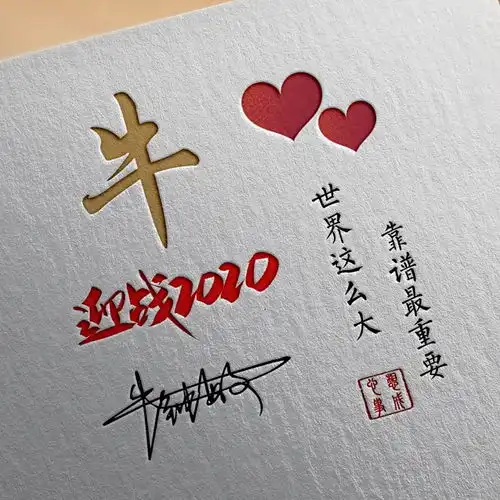 牛
迎战2020
世界这么大
靠谱最重要
心想事成